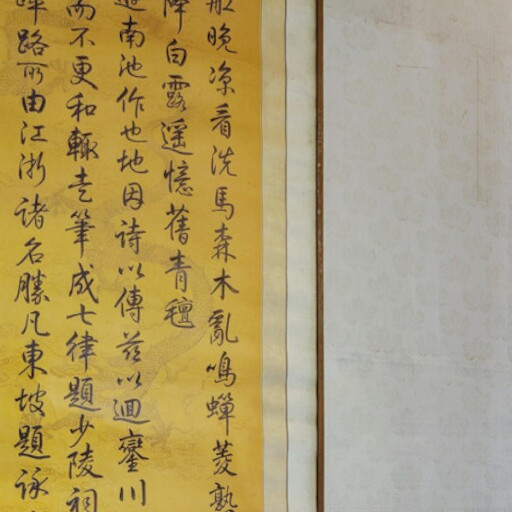 晚涼看洗馬森木亂鳴蟬菱熟
降白露遙憶舊青氊
南池作也地因詩以傳茲以迴鑾川
而不更和輒走筆成七律題少陵祠
路所由江浙諸名勝凡東坡題詠